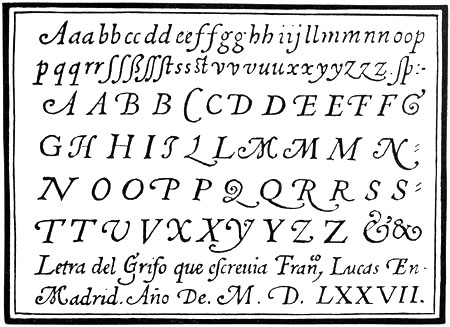 Aaabbccddeeffgghhiijllmmnnoop
pqqrrſſſßſſſtssstvvvuuxxyyzzz.ſp:-
AABBCCDDEEFFG
GHHIILLMMMN:
NOOPPQQRRSS:
TTVVXXYYZZ&&
Letra del Grifo que eſcreuia Franº, Lucas En-
Madrid. Año De. M. D. LXXVII.